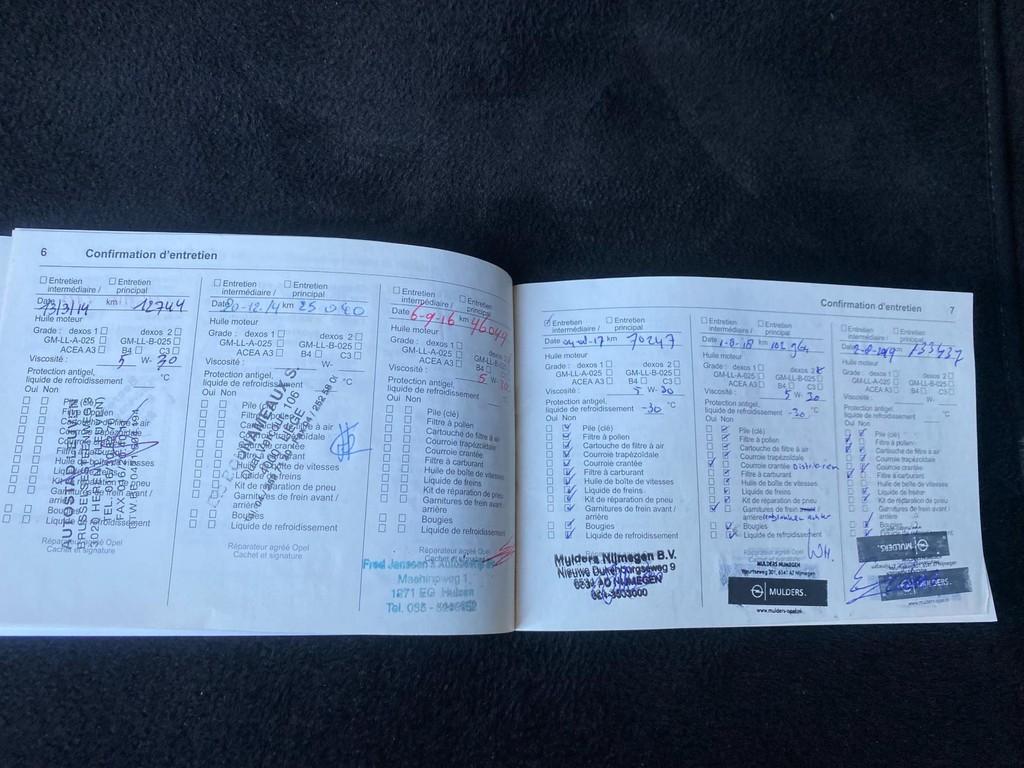 6 Confirmation d'entretien
Entretien intermédiaire / Entretien principal
Date 13/3/14 km 12744
Huile moteur
Grade : dexos 1 dexos 2
GM-LL-A-025 GM-LL-B-025
ACEA A3 B4 C3
Viscosité : 5 W- 30
Protection antigel,
liquide de refroidissement °C
Oui Non
Pile (clé)
Réparateur agréé Opel
Cachet et signature
AUTOSTAD
Entretien intermédiaire / Entretien principal
Date 20-12-14 km 25 040
Huile moteur
Grade : dexos 1 dexos 2
GM-LL-A-025 GM-LL-B-025
ACEA A3 B4 C3
Viscosité : W-
Protection antigel,
liquide de refroidissement °C
Oui Non
Pile (clé)
Filtre à pollen
Huile de boîte de vitesses
Liquide de freins
Kit de réparation de pneu
Garnitures de frein avant /
arrière
Bougies
Liquide de refroidissement
Réparateur agréé Opel
Cachet et signature
Entretien intermédiaire / Entretien principal
Date 6-9-16 km
Huile moteur
Grade : dexos 1
GM-LL-A-025
ACEA A3 B4
Viscosité : 5 W-30
Protection antigel,
liquide de refroidissement
Oui Non
Pile (clé)
Filtre à pollen
Cartouche de filtre à air
Courroie trapézoïdale
Courroie crantée
Filtre à carburant
Huile de boîte de vitesses
Liquide de freins
Kit de réparation de pneu
Garnitures de frein avant /
arrière
Bougies
Liquide de refroidissement
Réparateur agréé Opel
Cachet et signature
Fred Janssen
1271 EG Huizen
Confirmation d'entretien 7
Entretien intermédiaire / Entretien principal
Date km 70247
Huile moteur
Grade : dexos 1 dexos 2
GM-LL-A-025 GM-LL-B-025
ACEA A3 B4 C3
Viscosité : 5 W-30
Protection antigel,
liquide de refroidissement -30 °C
Oui Non
Pile (clé)
Filtre à pollen
Cartouche de filtre à air
Courroie trapézoïdale
Courroie crantée
Filtre à carburant
Huile de boîte de vitesses
Liquide de freins
Kit de réparation de pneu
Garnitures de frein avant /
arrière
Bougies
Liquide de refroidissement
Mulders Nijmegen B.V.
Nieuwe Dukenburgseweg 9
6534 AD NIJMEGEN
Entretien intermédiaire / Entretien principal
Date 1-8-18 km
Huile moteur
Grade : dexos 1 dexos 2
GM-LL-A-025 GM-LL-B-025
ACEA A3 B4 C3
Viscosité : 5 W- 30
Protection antigel,
liquide de refroidissement -30 °C
Oui Non
Pile (clé)
Filtre à pollen
Cartouche de filtre à air
Courroie trapézoïdale
Courroie crantée
Filtre à carburant
Huile de boîte de vitesses
Liquide de freins
Kit de réparation de pneu
Garnitures de frein avant /
arrière
Bougies
Liquide de refroidissement
Réparateur agréé Opel
Cachet et signature
MULDERS NIJMEGEN
MULDERS.
www.mulders-opel.nl
Entretien intermédiaire / Entretien principal
Date 2-8-2019 km 133437
Huile moteur
Grade : dexos 1 dexos 2
GM-LL-A-025 GM-LL-B-025
ACEA A3 B4 C3
Viscosité : W-
Protection antigel,
liquide de refroidissement °C
Oui Non
Pile (clé)
Filtre à pollen
Cartouche de filtre à air
Courroie trapézoïdale
Courroie crantée
Filtre à carburant
Huile de boîte de vitesses
Liquide de freins
Kit de réparation de pneu
Garnitures de frein avant /
arrière
Bougies
Liquide de refroidissement
MULDERS.
MULDERS.
www.mulders-opel.nl